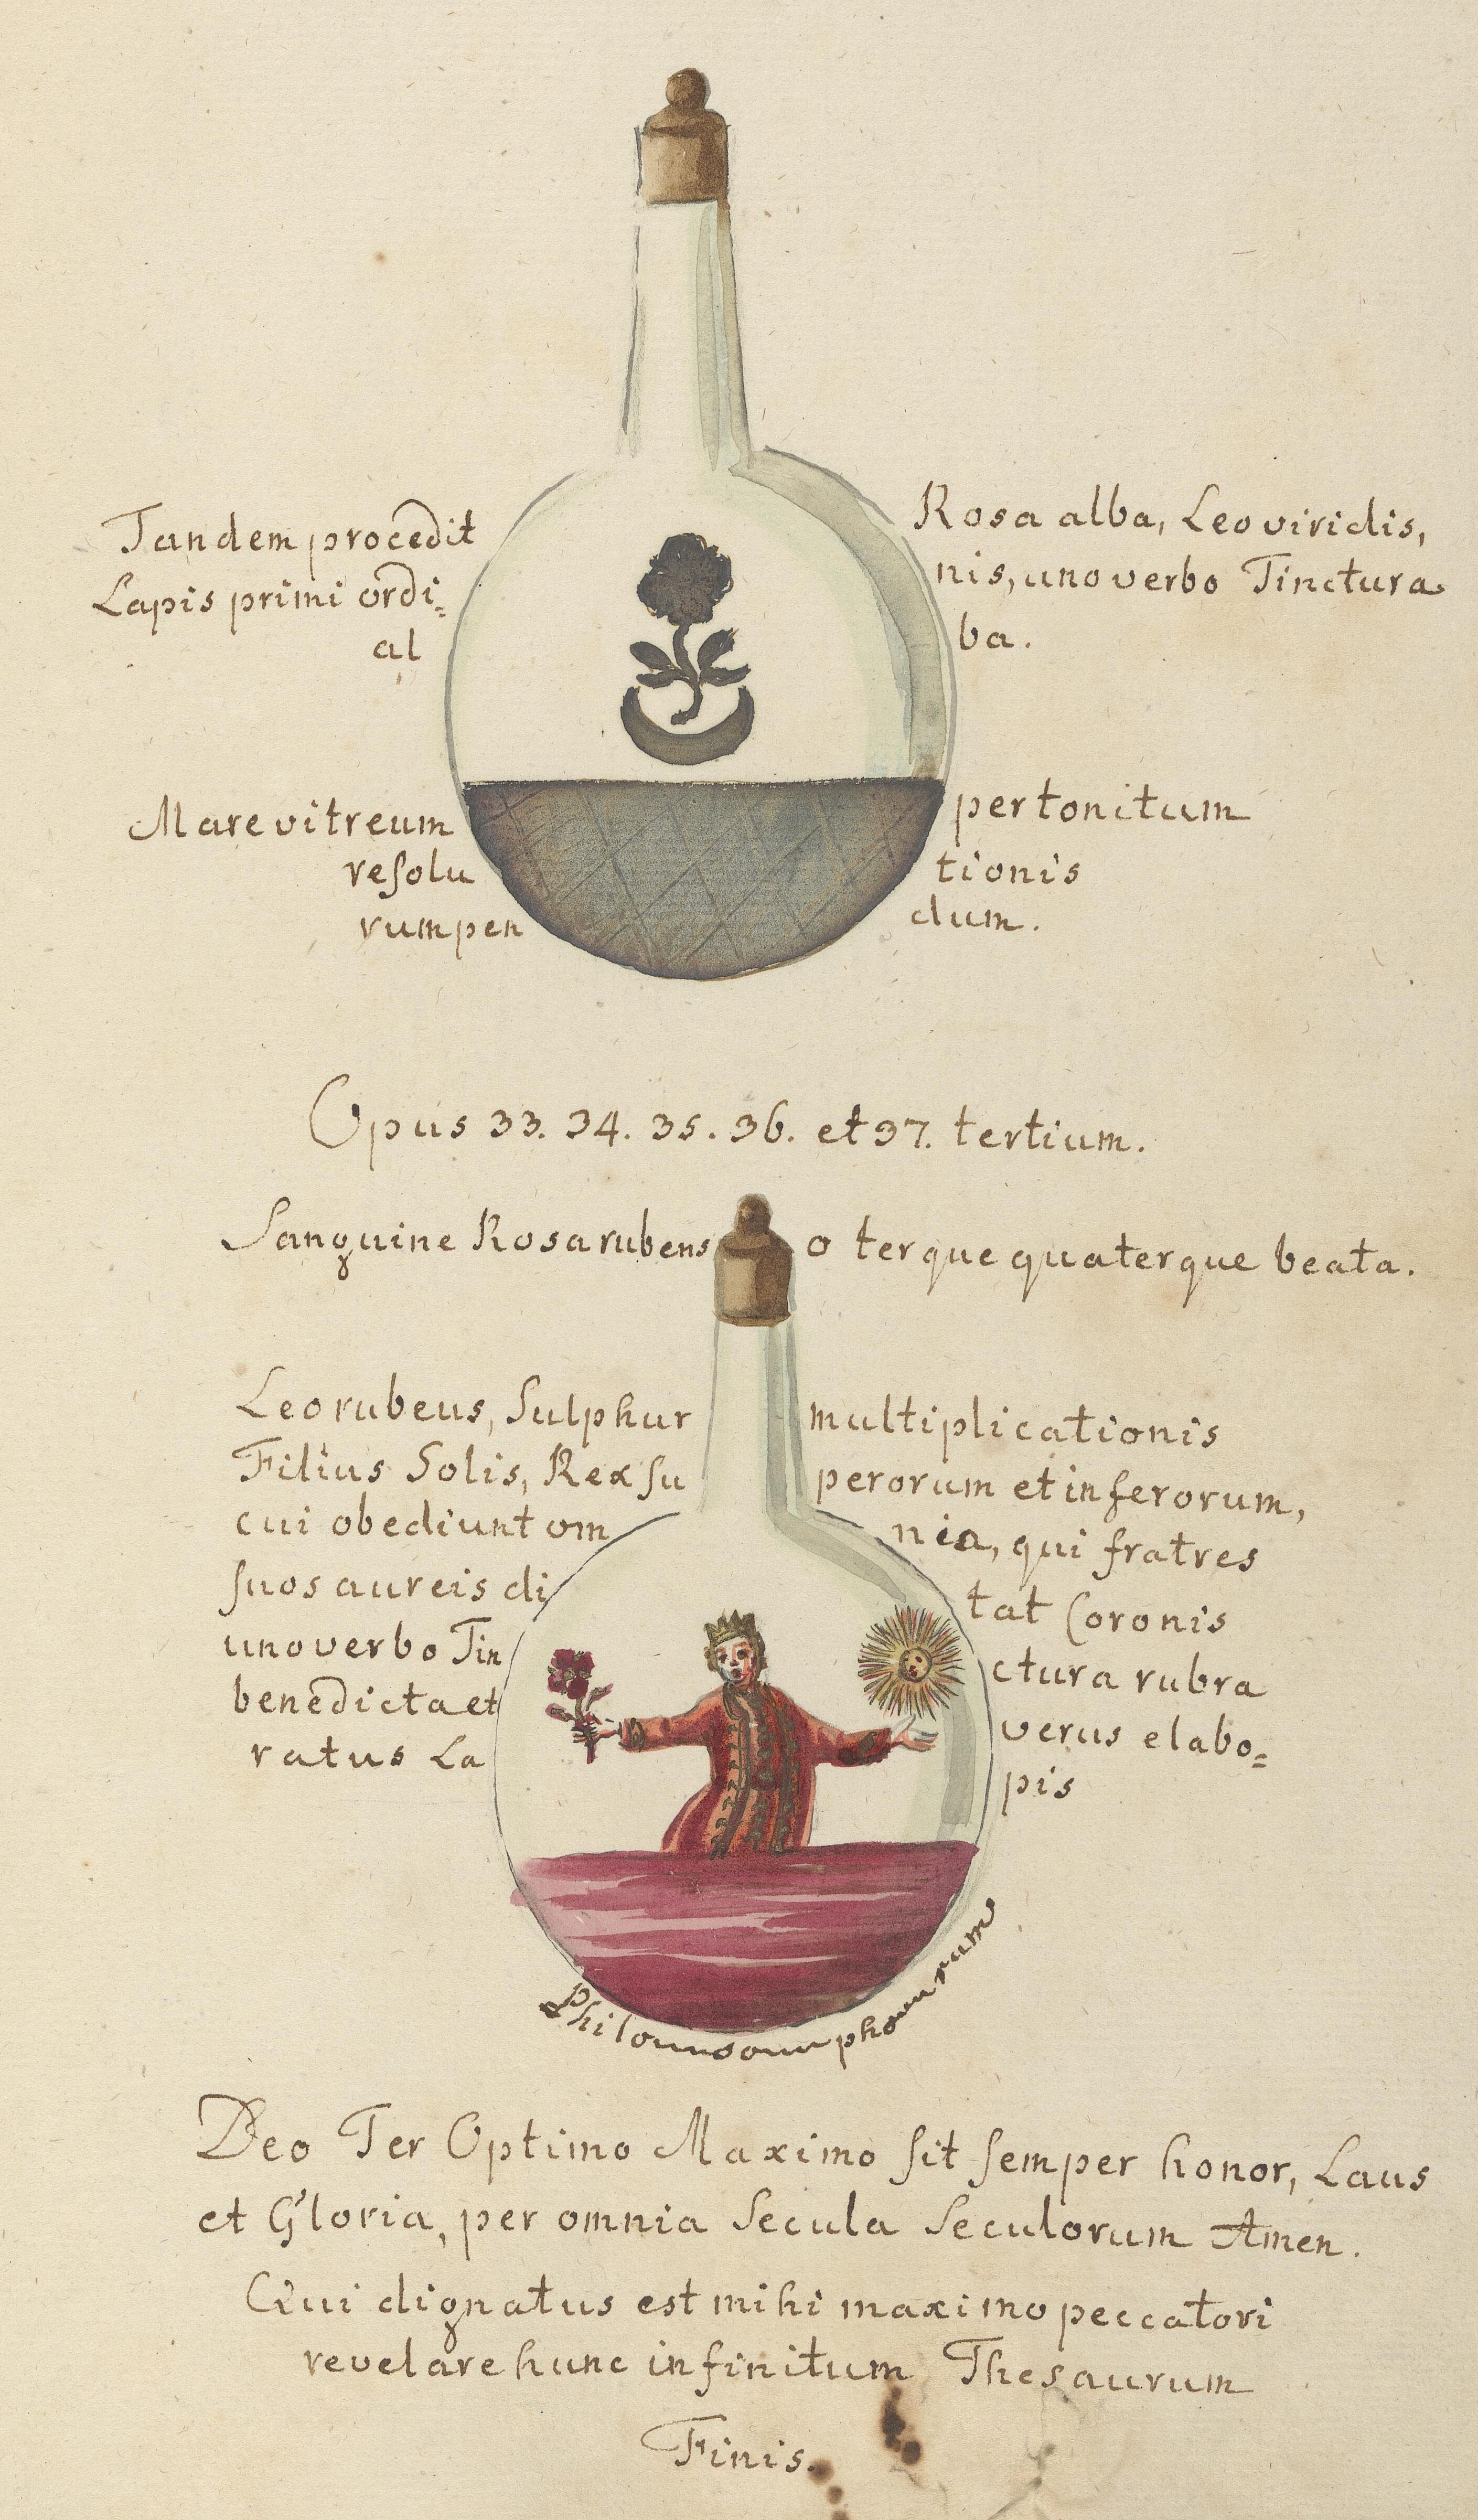 Tandem procedit Rosa alba, Leo viridis,
Lapis primi ordi= nis, uno verbo Tinctura
al ba.
Mare vitreum per tonitum
resolu tionis
rumpen dum.
Opus 33. 34. 35. 36. et 37. tertium.
Sanguine Rosa rubens o terque quaterque beata.
Leo rubeus, Sulphur multiplicationis
Filius Solis, Rex su perorum et inferorum,
cui obediunt om nia, qui fratres
suos aureis di tat Coronis
uno verbo Tin ctura rubra
benedicta et verus elabo=
ratus La pis
Philo so pho rum
Deo Ter Optimo Maximo sit semper honor, Laus
et Gloria, per omnia Secula Seculorum Amen.
Qui dignatus est mihi maximo peccatori
revelare hunc infinitum Thesaurum
Finis.